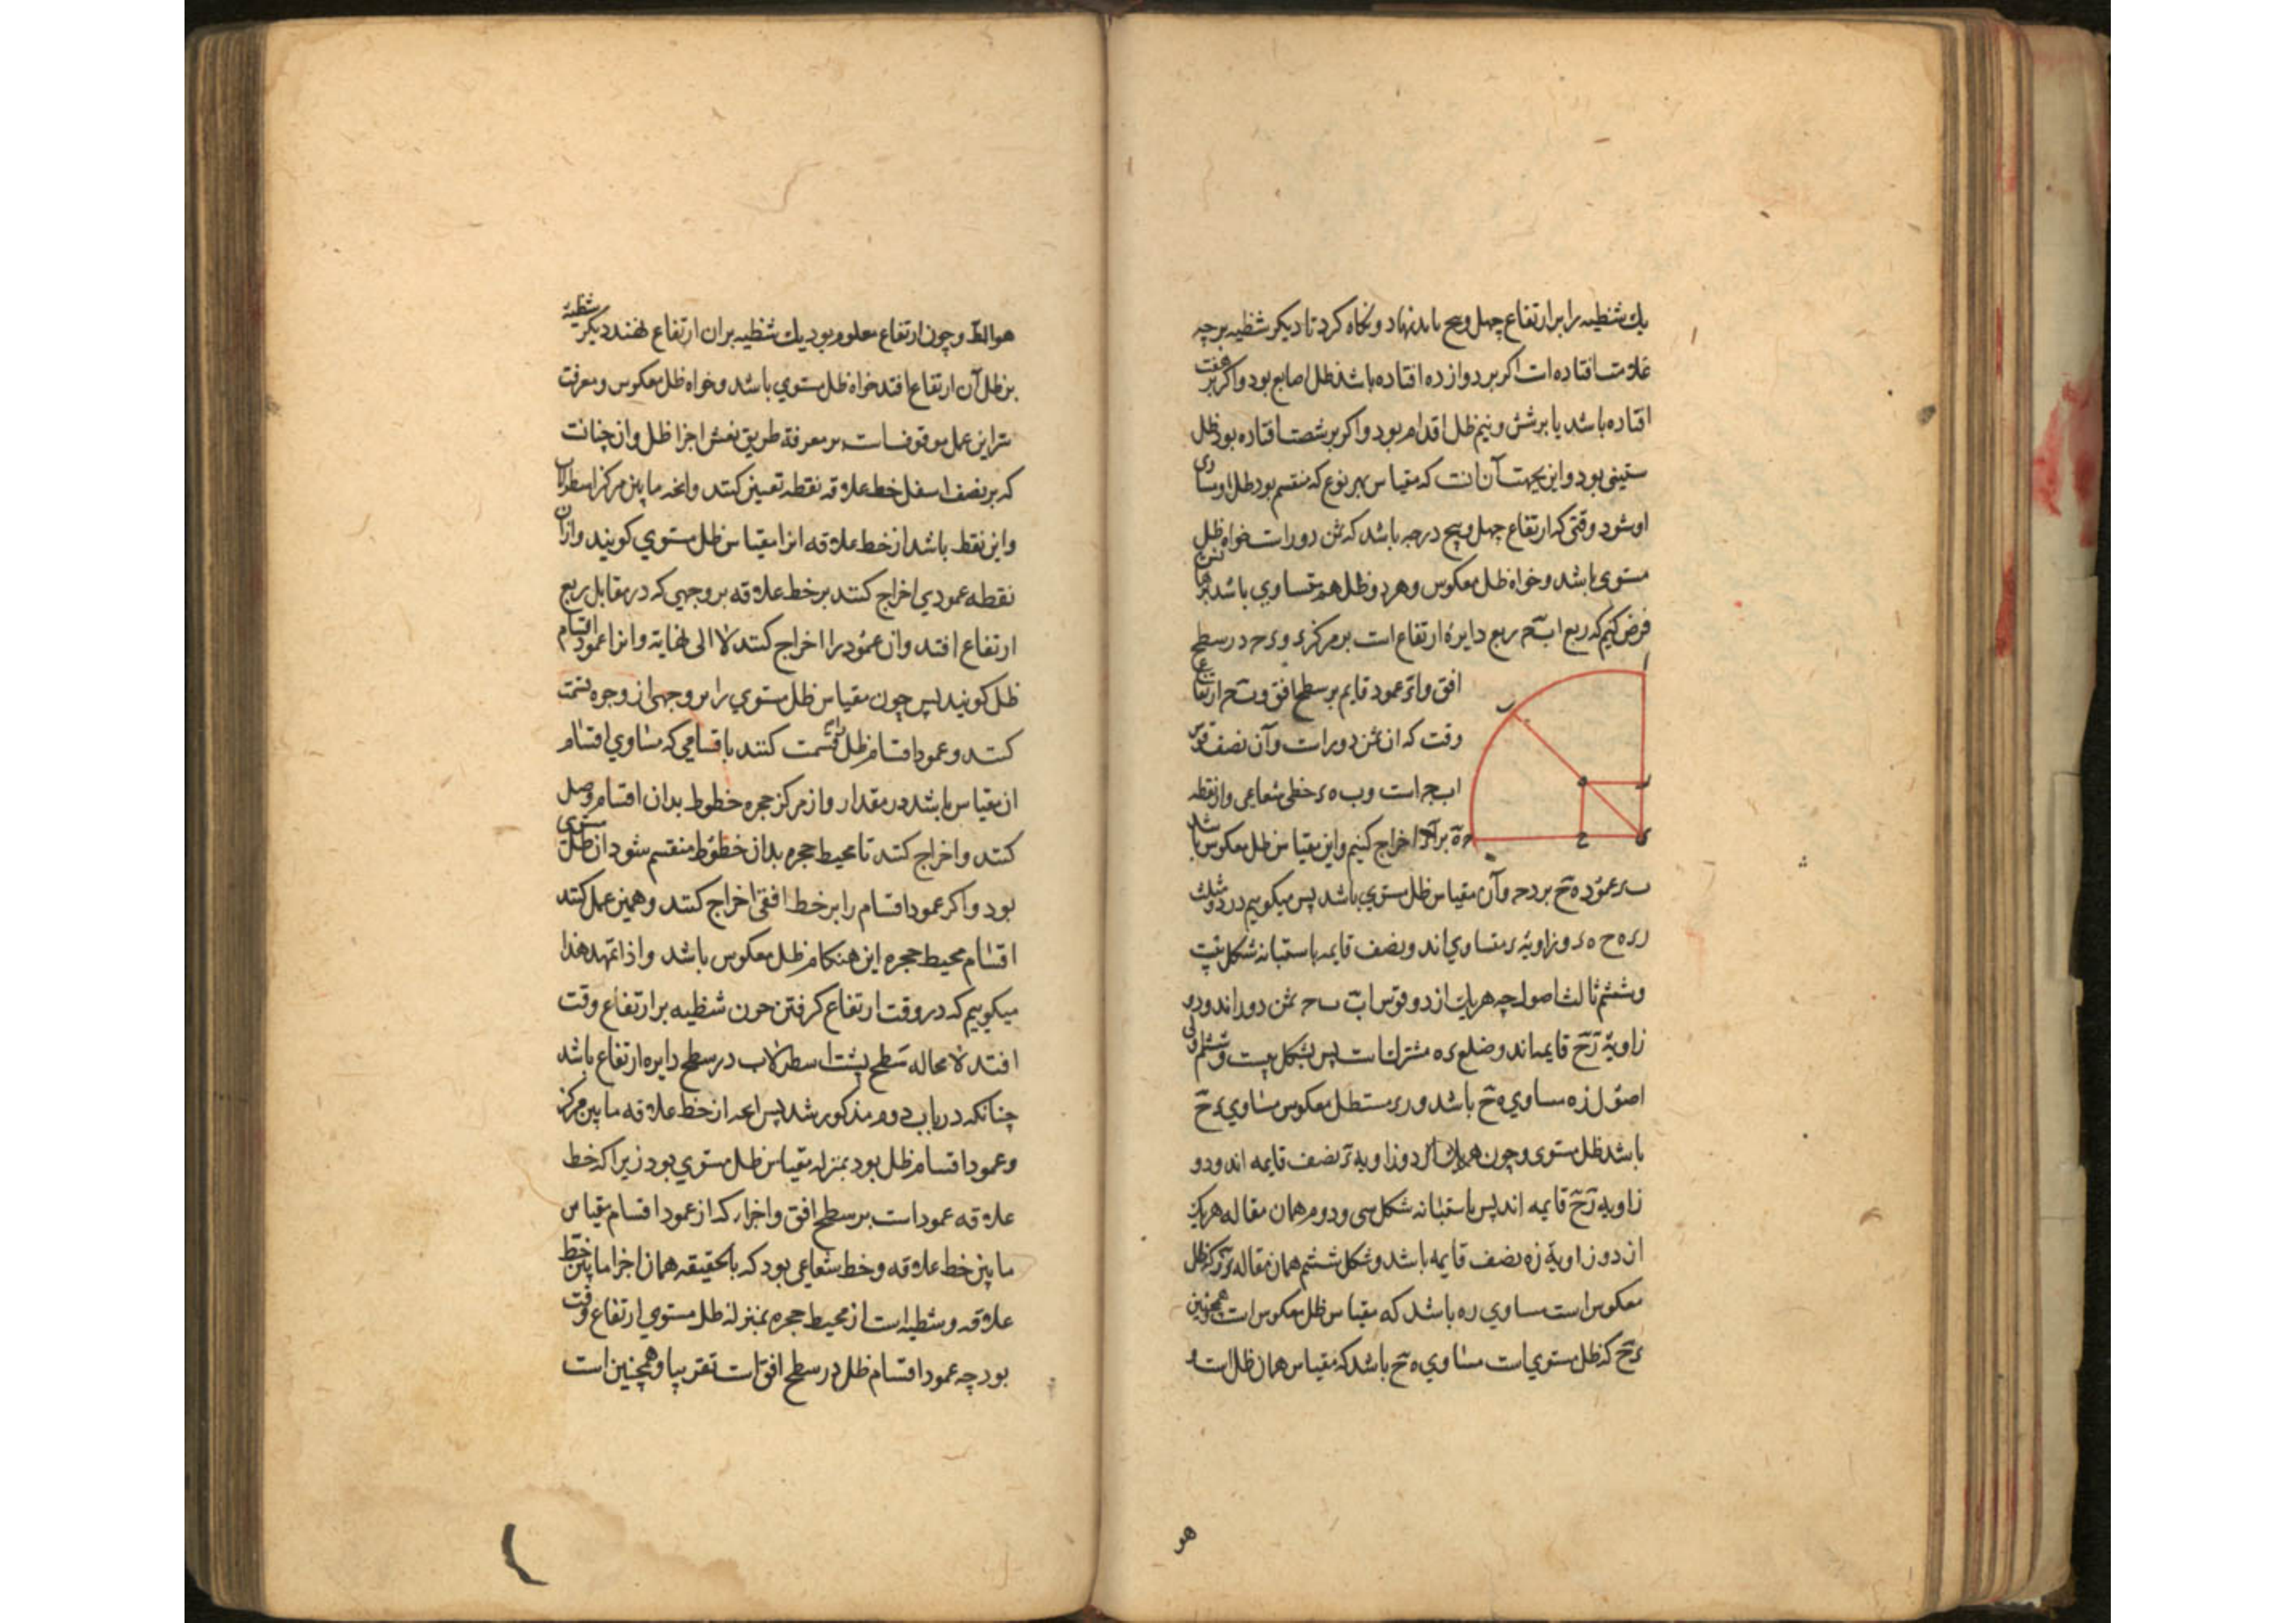 یك شظیه را بر ارتفاع چهل و پنج باید نهاد و نکاه کرد تا دیکر شظیه بر چه
علامت افتاده است اکر بر دوازده افتاده باشد ظل اصابع بود و اکر بر هفت
افتاده باشد یا بر شش و نیم ظل اقدام بود و اکر بر شصت افتاده بود ظل
ستینی بود و این بجهت آن است که مقیاس بهر نوع که منقسم بود ظل او مساوی
او شود وقتی که ارتفاع چهل و پنج درجه باشد که ثمن دور است خواه ظل
مستوی باشد و خواه ظل معکوس و هر دو ظل هم متساوی باشد
فرض کنیم که ربع ابح ربع دایرۀ ارتفاع است بر مرکز ی و ی ح در سطح
افق و ای عمود قایم بر سطح افق و بح ارتفاع
وقت که ان ثمن دور است و آن نصف قوس
ابح است و ب ه ی خطی شعاعی و از نقطه
ه ر بر ای اخراج کنیم و این مقیاس ظل معکوس باشد
عمود ه ح بر ی ح و آن مقیاس ظل مستوی باشد پس میکوییم در دو مثلث
ر ی ه ح ه ی دو زاویۀ ی متساوی اند و نصف قایمه باستبانه شکل بیست
و ششم ثالث اصول چه هر یك از دو قوس اب ب ح ثمن دور اند و دو
زاویۀ ر ح قایمه اند و ضلع ی ه مشترك است پس بشکل بیست و ششم اولی
اصول ر ه مساوی ه ح باشد و ر ی ظل معکوس مساوی ی ح
باشد ظل مستوی و چون هر یك از دو زاویه ی نصف قایمه اند و دو
زاویه ر ح قایمه اند پس باستبانه شکل سی و دوم همان مقاله هر یك
از دو زاویۀ ه نصف قایمه باشد و شکل ششم همان مقاله ر ی که ظل
معکوس است مساوی ر ه باشد که مقیاس ظل معکوس است همچنین
ی ح که ظل مستوی است مساوی ه ح باشد که مقیاس همان ظل است و
هو
هو المط و چون ارتفاع معلوم بود یك شظیه بران ارتفاع نهند دیکر شظیه
بر ظل آن ارتفاع افتد خواه ظل مستوی باشد و خواه ظل معکوس و معرفت
سر این عمل موقوف است بر معرفة طریق نقش اجزا ظل و ان چنانست
که بر نصف اسفل خط علاقه نقطه تعیین کنند و انچه مابین مرکز اسطرلاب
و این نقطه باشد از خط علاقه انرا مقیاس ظل مستوی کویند و ازان
نقطه عمودی اخراج کنند بر خط علاقه بر وجهی که در مقابل ربع
ارتفاع افتد و ان عمود را اخراج کنند لا الی نهایة و انرا عمود اقسام
ظل کویند پس چون مقیاس ظل مستوی را بر وجهی از وجوه قسمت
کنند و عمود اقسام ظل را قسمت کنند باقسامی که مساوی اقسام
ان مقیاس باشد در مقدار و از مرکز حجره خطوط بدان اقسام وصل
کنند و اخراج کنند تا محیط حجره بدان خطوط منقسم شود ان ظل مستوی
بود و اکر عمود اقسام را بر خط افقی اخراج کنند و همین عمل کنند
اقسام محیط حجره این هنکام ظل معکوس باشد و اذا تمهد هذا
میکوییم که در وقت ارتفاع کرفتن چون شظیه بر ارتفاع وقت
افتد لا محاله سطح پشت اسطرلاب در سطح دایره ارتفاع باشد
چنانکه در باب دوم مذکور شد پس انچه از خط علاقه مابین مرکز
و عمود اقسام ظل بود بمنزله مقیاس ظل مستوی بود زیرا که خط
علاقه عمود است بر سطح افق و اجزا که از عمود اقسام مقیاس
مابین خط علاقه و خط شعاعی بود که بالحقیقه همان اجزا مابین خط
علاقه و شظیه است از محیط حجره بمنزله ظل مستوی ارتفاع وقت
بود چه عمود اقسام ظل در سطح افق است تقریبا و همچنین است